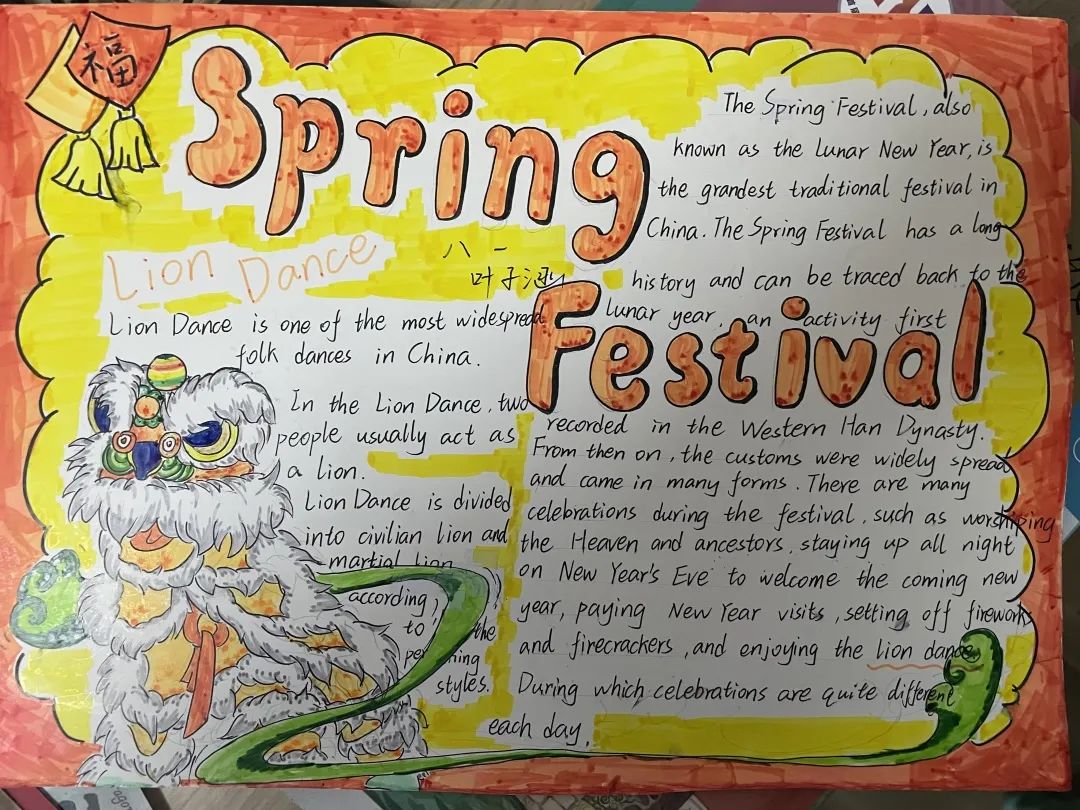 福
Spring
Festival
八一
叶子涵
The Spring Festival, also
known as the Lunar New Year, is
the grandest traditional festival in
China. The Spring Festival has a long
history and can be traced back to the
lunar year, an activity first
recorded in the Western Han Dynasty.
From then on, the customs were widely spread
and came in many forms. There are many
celebrations during the festival, such as worshiping
the Heaven and ancestors, staying up all night
on New Year's Eve to welcome the coming new
year, paying New Year visits, setting off fireworks
and firecrackers, and enjoying the lion dance.
During which celebrations are quite different
each day.
Lion Dance
Lion Dance is one of the most widespread
folk dances in China.
In the Lion Dance, two
people usually act as
a lion.
Lion Dance is divided
into civilian lion and
martial lion
according
to the
styles.